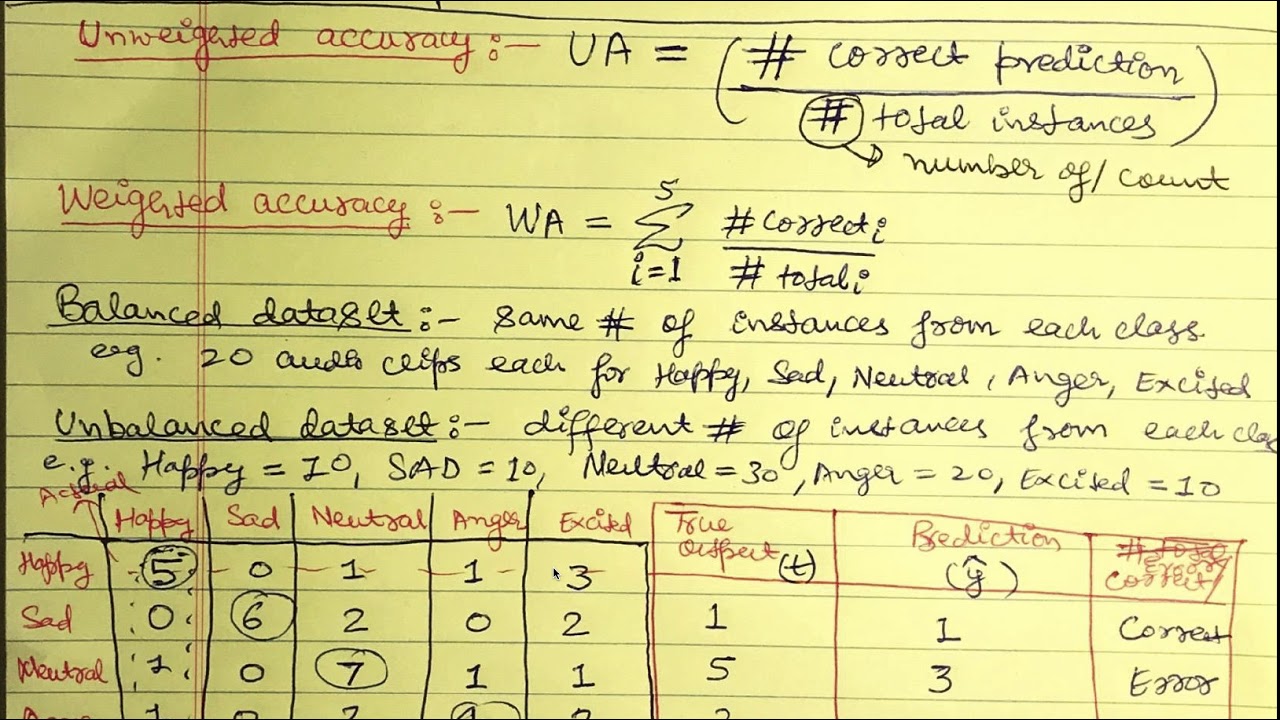 Unweigrted accuracy :- UA = (# correct prediction / # total instances)
→ number of / count
Weigrted accuracy :- WA = 5 Σ i=1 # correct i / # total i
Balanced dataset :- same # of instances from each class
e.g. 20 audio clips each for Happy, Sad, Neutral, Anger, Excited
Unbalanced dataset :- different # of instances from each clas
e.g. Happy = 10, SAD = 10, Neutral = 30, Anger = 20, Excited = 10
Actual
Happy Sad Neutral Anger Excited True output (t) Prediction (ŷ) # Correct/
Happy 5 0 1 1 3
Sad 0 6 2 0 2 1 1 Correct
Neutral 1 0 7 1 1 5 3 Error